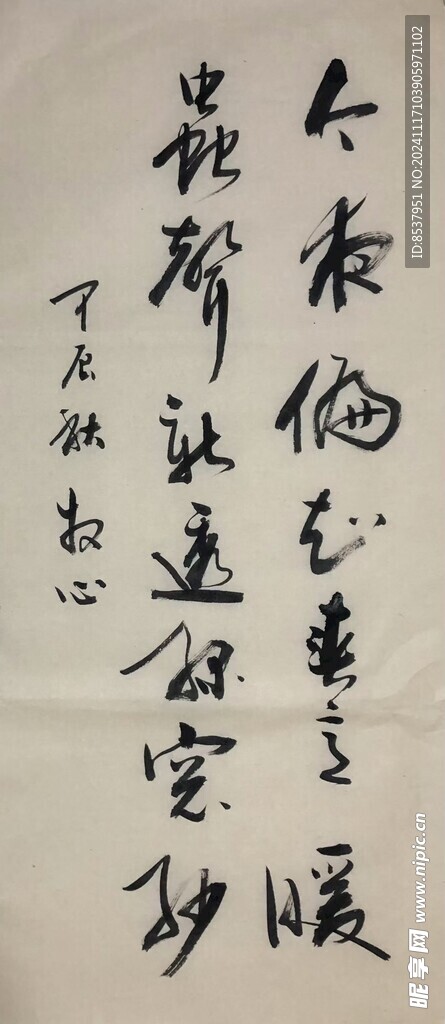 今夜偏知春意暖
蟲聲新透綠窗紗
甲辰秋牧心
ID:8537951 NO:20241117103905971102
昵享网 www.nipic.cn